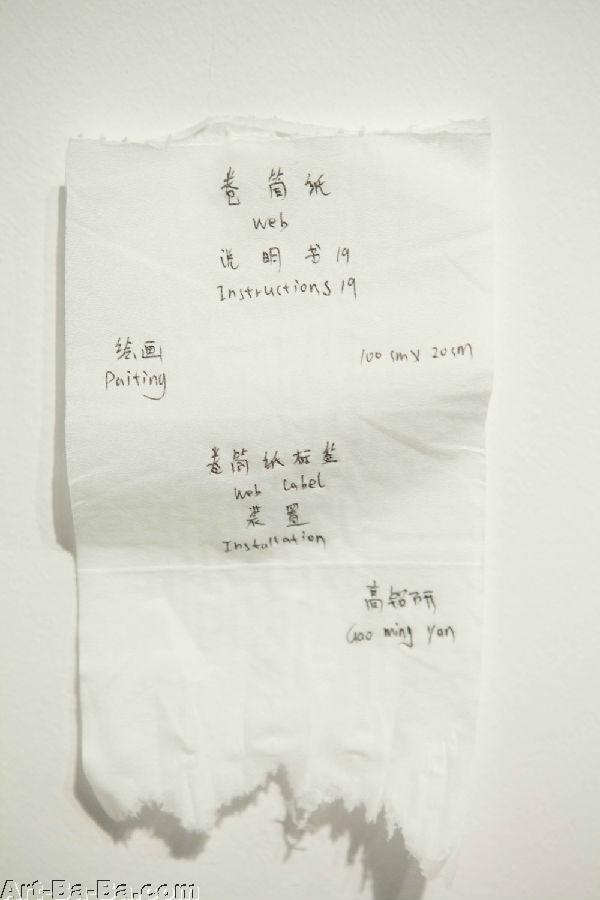 卷筒纸
Web
说明书19
Instructions 19
绘画 100 cm x 20 cm
Paiting
卷筒纸标签
Web Label
装置
Installation
高铭研
Gao ming Yan
Art-Ba-Ba.com